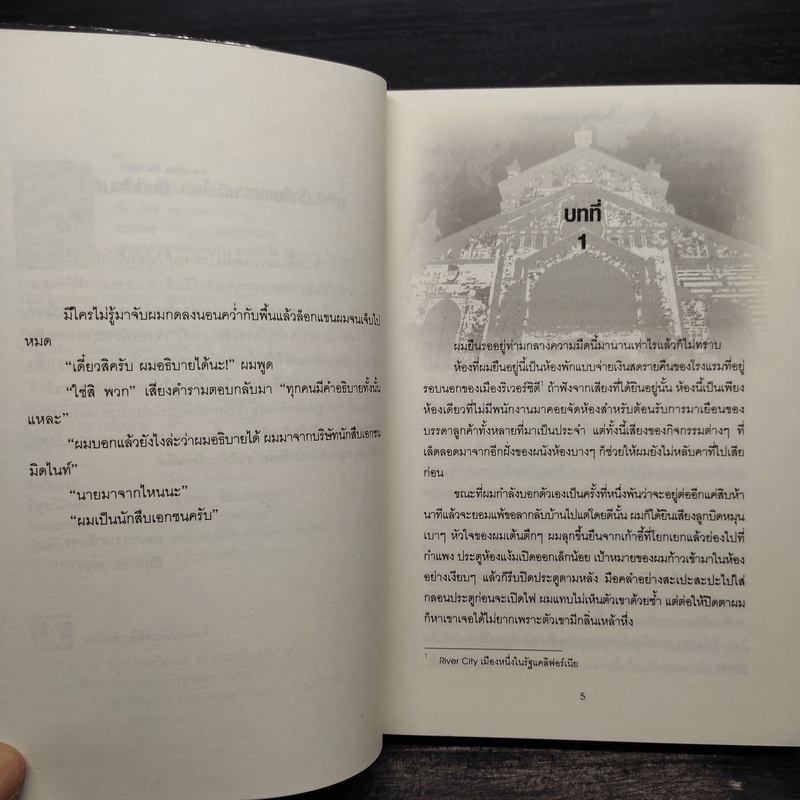 มีใครไม่รู้มาจับผมกดลงนอนคว่ำกับพื้นแล้วล็อกแขนผมจนเจ็บไป
หมด
“เดี๋ยวสิครับ ผมอธิบายได้นะ!” ผมพูด
“ใช่สิ พวก” เสียงคำรามตอบกลับมา “ทุกคนมีคำอธิบายทั้งนั้น
แหละ”
“ผมบอกแล้วยังไงล่ะว่าผมอธิบายได้ ผมมาจากบริษัทนักสืบเอกชน
มิดไนท์”
“นายมาจากไหนนะ”
“ผมเป็นนักสืบเอกชนครับ”
บทที่
1
ผมยืนรออยู่ท่ามกลางความมืดนี้มานานเท่าไรแล้วก็ไม่ทราบ
ห้องที่ผมยืนอยู่นี้เป็นห้องพักแบบจ่ายเงินสดรายคืนของโรงแรมที่อยู่
รอบนอกของเมืองริเวอร์ซิตี้1 ถ้าฟังจากเสียงที่ได้ยินอยู่นั้น ห้องนี้เป็นเพียง
ห้องเดียวที่ไม่มีพนักงานมาคอยจัดห้องสำหรับต้อนรับการมาเยือนของ
บรรดาลูกค้าทั้งหลายที่มาเป็นประจำ แต่ทั้งนี้เสียงของกิจกรรมต่างๆ ที่
เล็ดลอดมาจากอีกฝั่งของผนังห้องบางๆ ก็ช่วยให้ผมยังไม่หลับคาที่ไปเสีย
ก่อน
ขณะที่ผมกำลังบอกตัวเองเป็นครั้งที่หนึ่งพันว่าจะอยู่ต่ออีกแค่สิบห้า
นาทีแล้วจะยอมแพ้ขอลากลับบ้านไปแต่โดยดีนั้น ผมก็ได้ยินเสียงลูกบิดหมุน
เบาๆ หัวใจของผมเต้นตึกๆ ผมลุกขึ้นยืนจากเก้าอี้ที่โยกเยกแล้วย่องไปที่
กำแพง ประตูห้องแง้มเปิดออกเล็กน้อย เป้าหมายของผมก้าวเข้ามาในห้อง
อย่างเงียบๆ แล้วก็รีบปิดประตูตามหลัง มือคลำอย่างสะเปะสะปะไปใส่
กลอนประตูก่อนจะเปิดไฟ ผมแทบไม่เห็นตัวเขาด้วยซ้ำ แต่ต่อให้ปิดตาผม
ก็หาเขาเจอได้ไม่ยากเพราะตัวเขามีกลิ่นเหล้าหึ่ง
1 River City เมืองหนึ่งในรัฐแคลิฟอร์เนีย
5